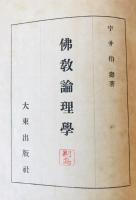 宇井伯壽著
佛教論理學
大東出版社